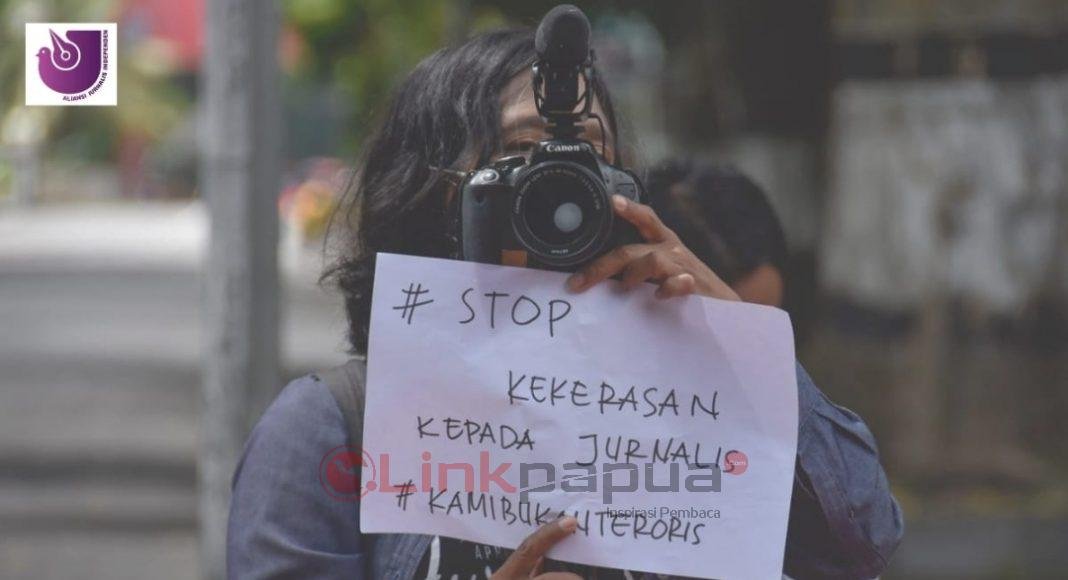 ALIANSI JURNALIS INDEPENDEN
Canon
# STOP
KEKERASAN
KEPADA JURNALIS
Linkpapua.com
# KAMIBUKANTERORIS
Inspirasi Pembaca